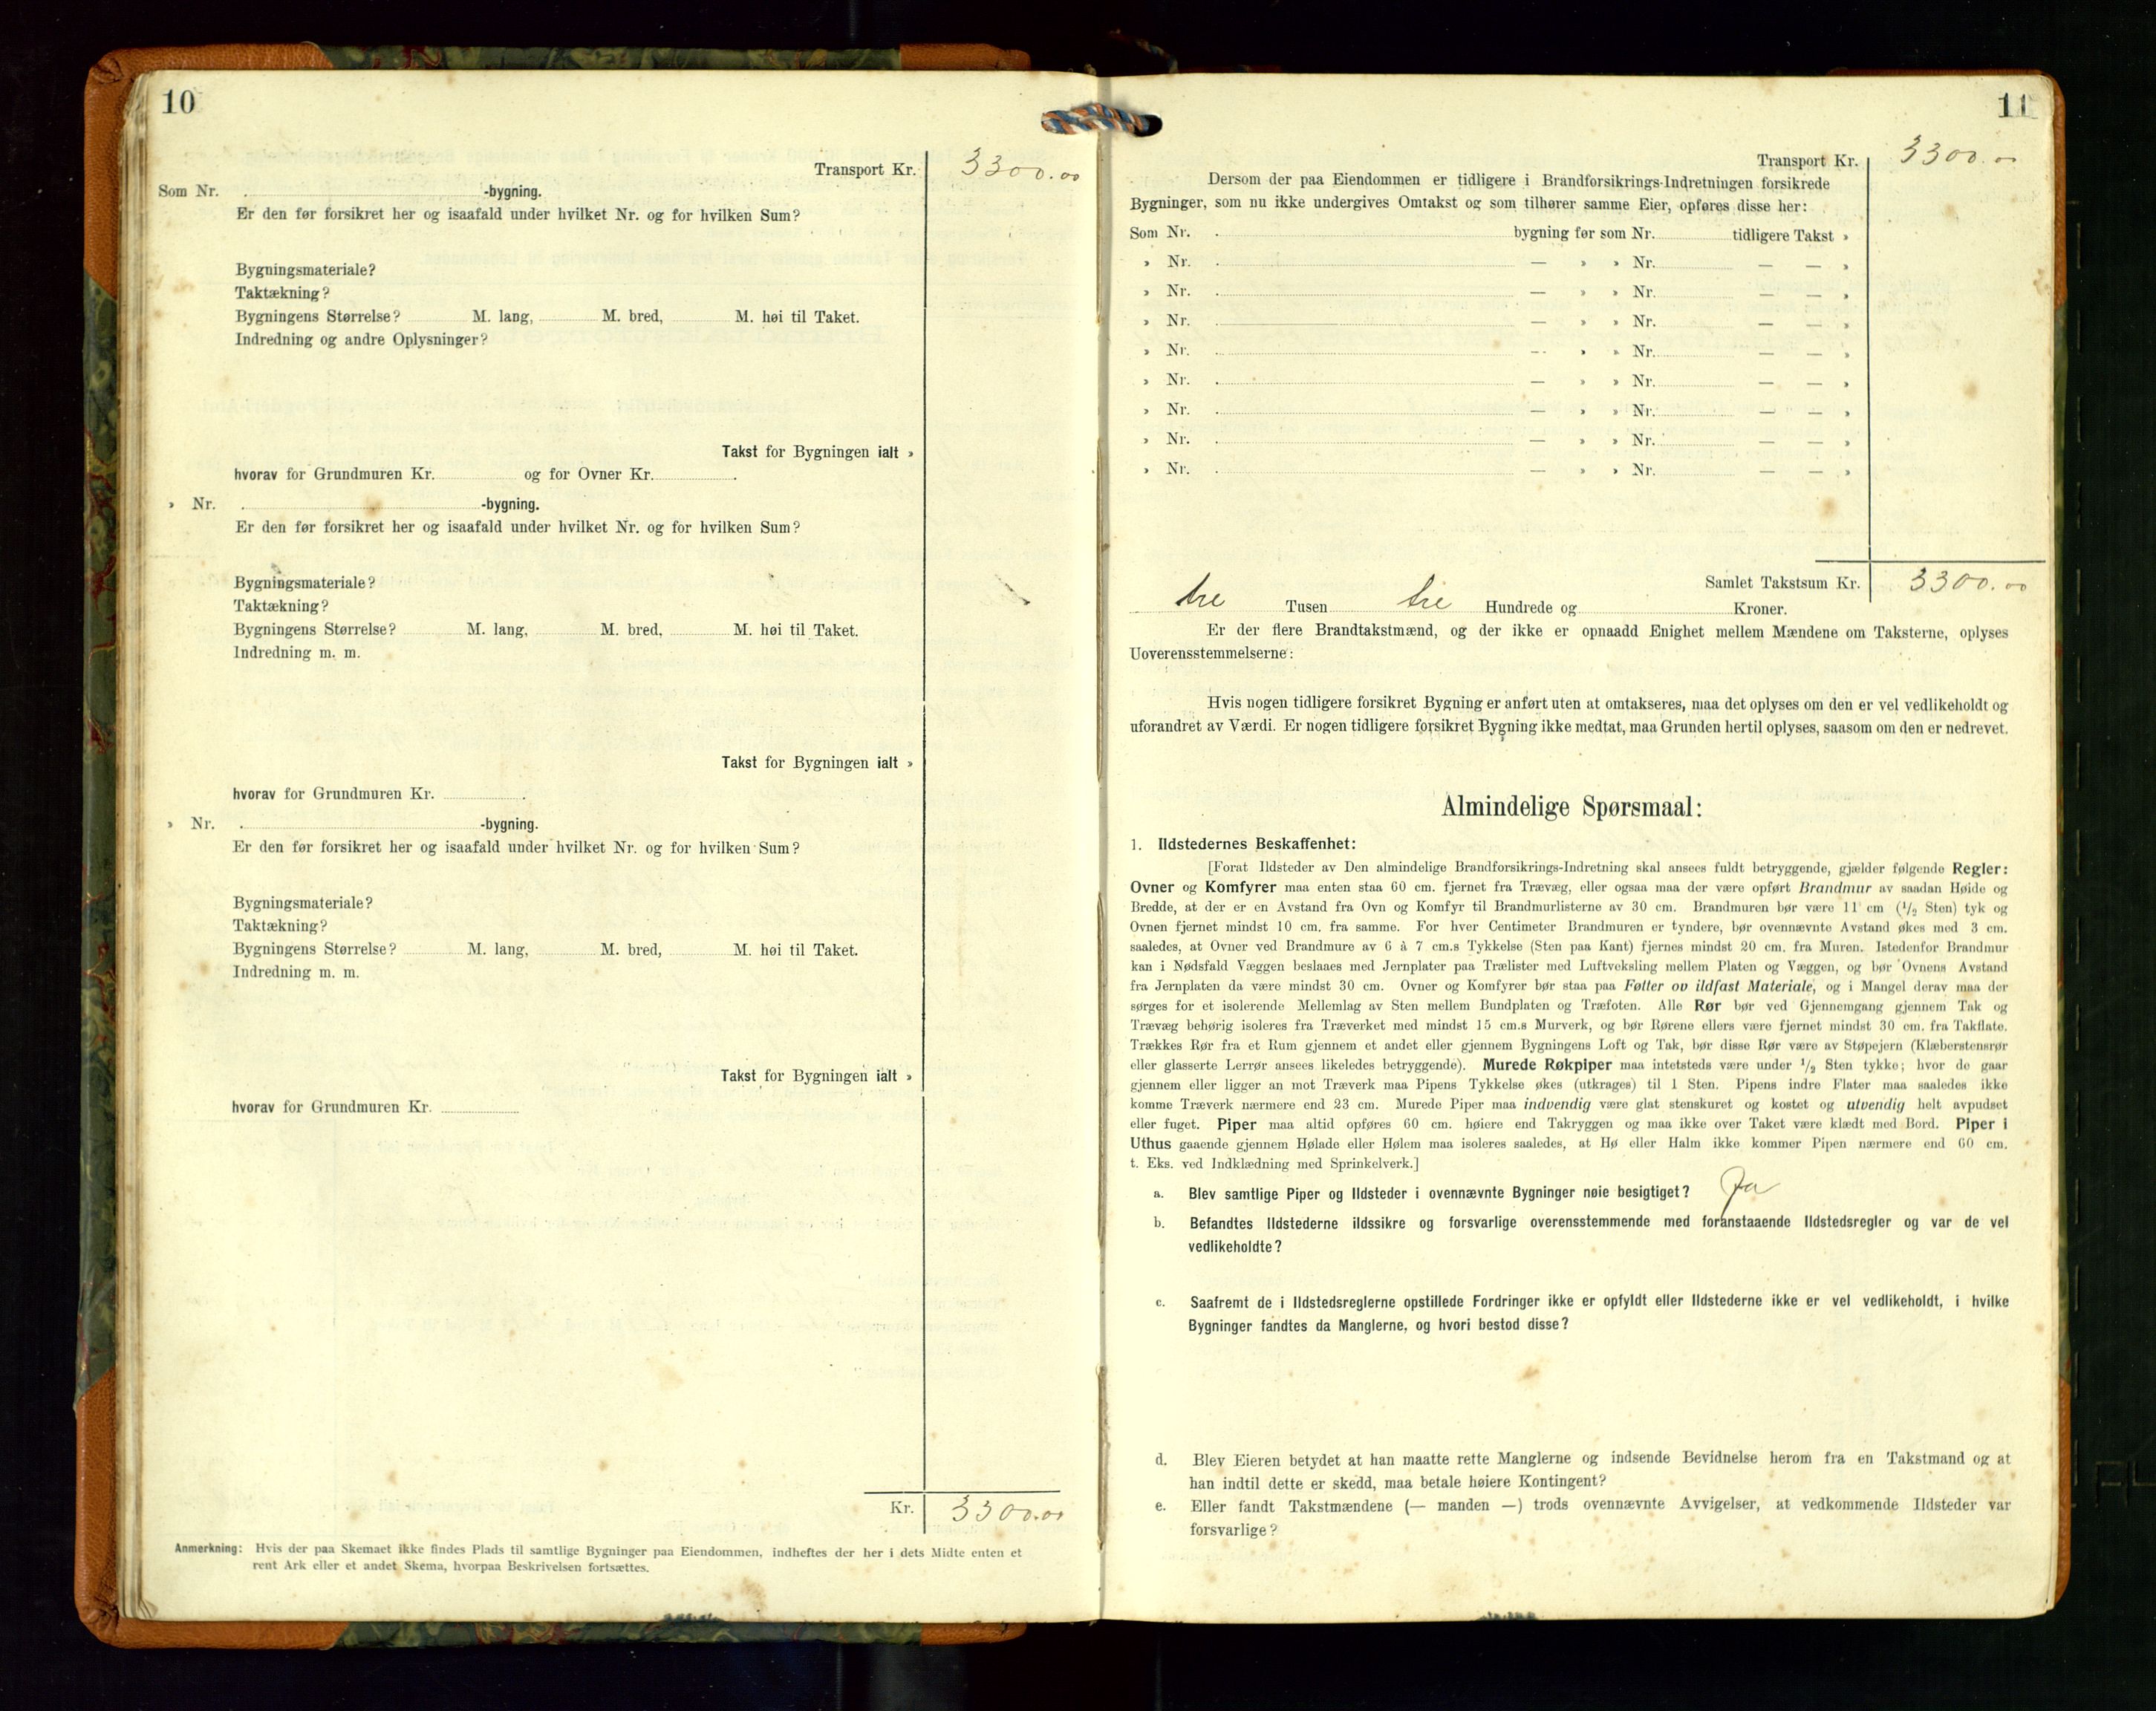 10
Transport Kr. 3300.00
Som Nr. -bygning.
Er den før forsikret her og isaafald under hvilket Nr. og for hvilken Sum?
Bygningsmateriale?
Taktækning?
Bygningens Størrelse? M. lang, M. bred, M. høi til Taket.
Indredning og andre Oplysninger?
Takst for Bygningen ialt »
hvorav for Grundmuren Kr. og for Ovner Kr.
» Nr. -bygning.
Er den før forsikret her og isaafald under hvilket Nr. og for hvilken Sum?
Bygningsmateriale?
Taktækning?
Bygningens Størrelse? M. lang, M. bred, M. høi til Taket.
Indredning m. m.
Takst for Bygningen ialt »
hvorav for Grundmuren Kr.
» Nr. -bygning.
Er den før forsikret her og isaafald under hvilket Nr. og for hvilken Sum?
Bygningsmateriale?
Taktækning?
Bygningens Størrelse? M. lang, M. bred, M. høi til Taket.
Indredning m. m.
Takst for Bygningen ialt »
hvorav for Grundmuren Kr.
Kr. 3300.00
Anmerkning: Hvis der paa Skemaet ikke findes Plads til samtlige Bygninger paa Eiendommen, indheftes der her i dets Midte enten et
rent Ark eller et andet Skema, hvorpaa Beskrivelsen fortsættes.
11
Transport Kr. 3300.00
Dersom der paa Eiendommen er tidligere i Brandforsikrings-Indretningen forsikrede
Bygninger, som nu ikke undergives Omtakst og som tilhører samme Eier, opføres disse her:
Som Nr. bygning før som Nr. tidligere Takst »
» Nr. — » » Nr. — — »
» Nr. — » » Nr. — — »
» Nr. — » » Nr. — — »
» Nr. — » » Nr. — — »
» Nr. — » » Nr. — — »
» Nr. — » » Nr. — — »
» Nr. — » » Nr. — — »
» Nr. — » » Nr. — — »
Samlet Takstsum Kr. 3300.00
tre Tusen tre Hundrede og Kroner.
Er der flere Brandtakstmænd, og der ikke er opnaadd Enighet mellem Mændene om Taksterne, oplyses
Uoverensstemmelserne:
Hvis nogen tidligere forsikret Bygning er anført uten at omtakseres, maa det oplyses om den er vel vedlikeholdt og
uforandret av Værdi. Er nogen tidligere forsikret Bygning ikke medtat, maa Grunden hertil oplyses, saasom om den er nedrevet.
Almindelige Spørsmaal:
1. Ildstedernes Beskaffenhet:
[Forat Ildsteder av Den almindelige Brandforsikrings-Indretning skal ansees fuldt betryggende, gjælder følgende Regler:
Ovner og Komfyrer maa enten staa 60 cm. fjernet fra Trævæg, eller ogsaa maa der være opført Brandmur av saadan Høide og
Bredde, at der er en Avstand fra Ovn og Komfyr til Brandmurlisterne av 30 cm. Brandmuren bør være 11 cm (1/2 Sten) tyk og
Ovnen fjernet mindst 10 cm. fra samme. For hver Centimeter Brandmuren er tyndere, bør ovennævnte Avstand økes med 3 cm.
saaledes, at Ovner ved Brandmure av 6 à 7 cm.s Tykkelse (Sten paa Kant) fjernes mindst 20 cm. fra Muren. Istedenfor Brandmur
kan i Nødsfald Væggen beslaaes med Jernplater paa Trælister med Luftveksling mellem Platen og Væggen, og bør Ovnens Avstand
fra Jernplaten da være mindst 30 cm. Ovner og Komfyrer bør staa paa Føtter ov ildfast Materiale, og i Mangel derav maa der
sørges for et isolerende Mellemlag av Sten mellem Bundplaten og Træfoten. Alle Rør bør ved Gjennemgang gjennem Tak og
Trævæg behørig isoleres fra Træverket med mindst 15 cm.s Murverk, og bør Rørene ellers være fjernet mindst 30 cm. fra Takflate.
Trækkes Rør fra et Rum gjennem et andet eller gjennem Bygningens Loft og Tak, bør disse Rør være av Støpejern (Klæberstensrør
eller glasserte Lerrør ansees likeledes betryggende). Murede Røkpiper maa intetsteds være under 1/2 Sten tykke; hvor de gaar
gjennem eller ligger an mot Træverk maa Pipens Tykkelse økes (utkrages) til 1 Sten. Pipens indre Flater maa saaledes ikke
komme Træverk nærmere end 23 cm. Murede Piper maa indvendig være glat stenskuret og kostet og utvendig helt avpudset
eller fuget. Piper maa altid opføres 60 cm. høiere end Takryggen og maa ikke over Taket være klædt med Bord. Piper i
Uthus gaaende gjennem Hølade eller Hølem maa isoleres saaledes, at Hø eller Halm ikke kommer Pipen nærmere end 60 cm.
t. Eks. ved Indklædning med Sprinkelverk.]
a. Blev samtlige Piper og Ildsteder i ovennævnte Bygninger nøie besigtiget? Ja
b. Befandtes Ildstederne ildssikre og forsvarlige overensstemmende med foranstaaende Ildstedsregler og var de vel
vedlikeholdte?
c. Saafremt de i Ildstedsreglerne opstillede Fordringer ikke er opfyldt eller Ildstederne ikke er vel vedlikeholdt, i hvilke
Bygninger fandtes da Manglerne, og hvori bestod disse?
d. Blev Eieren betydet at han maatte rette Manglerne og indsende Bevidnelse herom fra en Takstmand og at
han indtil dette er skedd, maa betale høiere Kontingent?
e. Eller fandt Takstmændene (— manden —) trods ovennævnte Avvigelser, at vedkommende Ildsteder var
forsvarlige?